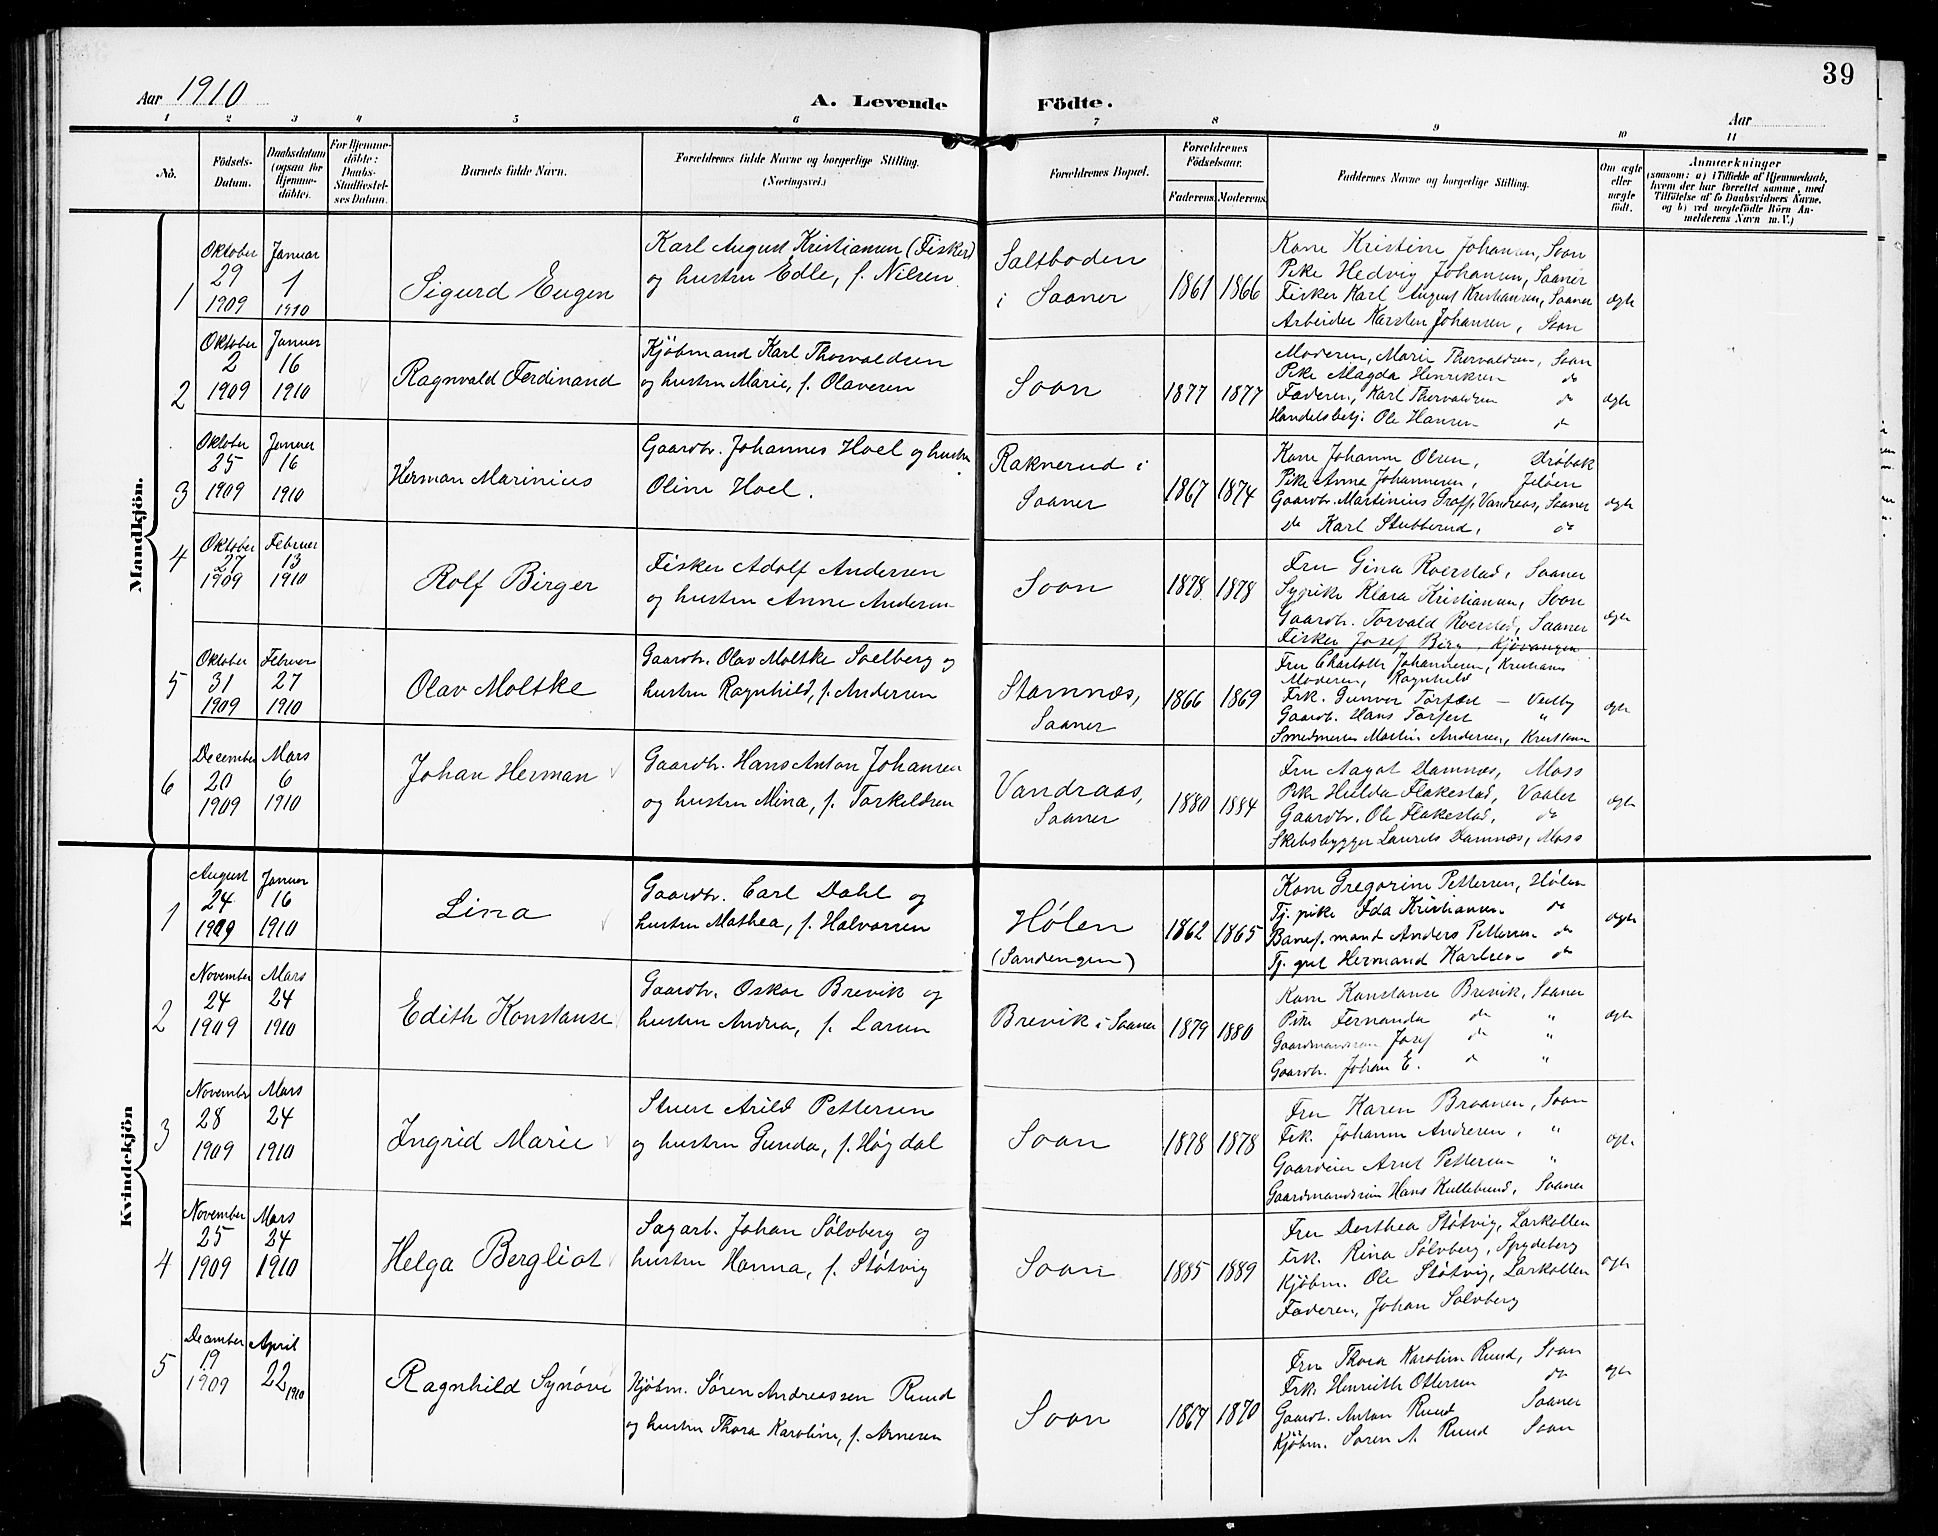 39
Aar 1910
A. Levende Födte.
Aar
1 2 3 4 5 6 7 8 9 10 11
No.
Födsels-
Datum.
Daabsdatum
(ogsaa for
Hjemme-
döbte).
For Hjemme-
döbte:
Daabs-
Stadfæstel-
ses Datum.
Barnets fulde Navn.
Forældrenes fulde Navne og borgerlige Stilling.
(Næringsvei.)
Forældrenes Bopæl.
Forældrenes
Födselsaar.
Faderens Moderens
Faddernes Navne og borgerlige Stilling.
Om ægte
eller
uægte
födt.
Anmærkninger
(saasom: a) i Tilfælde af Hjemmedaab,
hvem der har forrettet samme, med
Tilföielse af to Daabsvidners Navne,
og b) ved uægtefödte Börn An-
melderens Navn m. V.)
Mandkjön.
1
Oktober
29
1909
Januar
1
1910
Sigurd Eugen
Karl August Kristiansen (Fisker)
og hustru Edle, f. Nilsen
Saltboden
i Saaner
1861 1866
Kone Kristine Johansen, Soon
Pike Hedvig Johansen, Saaner
Fisker Karl August Kristiansen, Saaner
Arbeider Karsten Johansen, Soon
ægte
2
Oktober
2
1909
Januar
16
1910
Ragnvald Ferdinand
Kjöbmand Karl Thorvaldsen
og hustru Marie, f. Olavesen
Soon
1877 1877
Moderen, Marie Thorvaldsen, Soon
Pike Magda Henriksen do
Faderen, Karl Thorvaldsen do
Handelsbetj. Ole Hansen do
ægte
3
Oktober
25
1909
Januar
16
1910
Herman Marinius
Gaardbr. Johannes Hoel og hustru
Oline Hoel.
Raknerud i
Saaner
1867 1874
Kone Johanne Olsen, Dröbak
Pike Anna Johannesen, Jelöen
Gaardbr. Martinius Graff, Vandraas, Saaner
do Karl Stubberud, do
ægte
4
Oktober
27
1909
Februar
13
1910
Rolf Birger
Fisker Adolf Andersen
og hustru Anne Andersen
Soon
1878 1878
Fru Gina Roerstad, Saaner
Sypike Klara Kristiansen, Soon
Gaardbr. Torvald Roerstad, Saaner
Fisker Josef Berg, Kjövangen
ægte
5
Oktober
31
1909
Februar
27
1910
Olav Moltke
Gaardbr. Olav Moltke Soelberg og
hustru Ragnhild, f. Andersen
Stamnæs,
Saaner
1866 1869
Fru Charlotte Johannesen, Kristiania
Moderen, Ragnhild
Frk. Gunvor Torfæt — Vestby
Gaardb. Hans Torfæt "
Smedmester Martin Andersen, Kristiania
ægte
6
December
20
1909
Mars
6
1910
Johan Herman
Gaardbr. Hans Anton Johansen
og hustru Mina, f. Torkeldsen
Vandraas,
Saaner
1880 1884
Fru Aagot Damnæs, Moss
Pike Hulda Flakestad, Vaaler
Gaardbr. Ole Flakestad, do
Skibsbygger Laurits Damnæs, Moss
ægte
Kvindekjön
1
August
24
1909
Januar
16
1910
Lina
Gaardbr. Carl Dahl og
hustru Mathea, f. Halvorsen
Hølen
(Sandengen)
1862 1865
Kone Gregorine Pettersen, Hølen
Tj. pike Ida Kristiansen do
Banef. mand Anders Pettersen do
Tj. gut Hermand Karlsen do
ægte
2
November
24
1909
Mars
24
1910
Edith Konstanse
Gaardbr. Oskar Brevik og
hustru Andrea, f. Larsen
Brevik i Saaner
1879 1880
Kone Konstanse Brevik, Saaner
Pike Fernanda do "
Gaardmandssøn Josef do "
Gaardbr. Johan E. do "
ægte
3
November
28
1909
Mars
24
1910
Ingrid Marie
Stuert Arild Pettersen
og hustru Gunda, f. Høgdal
Soon
1878 1878
Fru Karen Braanen, Soon
Frk. Johanne Andresen, "
Gaardeier Arnt Pettersen "
Gaardmandssøn Hans Kullebund, Saaner
ægte
4
November
25
1909
Mars
24
1910
Helga Bergliot
Sagarb. Johan Sølvberg og
hustru Hanna, f. Støtvig
Soon
1885 1889
Fru Dorthea Støtvig, Larkollen
Frk. Rina Sølvberg, Spydeberg
Kjøbm. Ole Støtvig, Larkollen
Faderen, Johan Sølvberg
ægte
5
December
19
1909
April
22
1910
Ragnhild Synøve
Kjøbm. Søren Andreassen Ruud
og hustru Thora Karoline, f. Arnesen
Soon
1867 1870
Fru Thora Karoline Ruud, Soon
Frk. Henriette Ottersen do
Gaardb. Anton Ruud Saaner
Kjøbm. Søren A. Ruud Soon
ægte